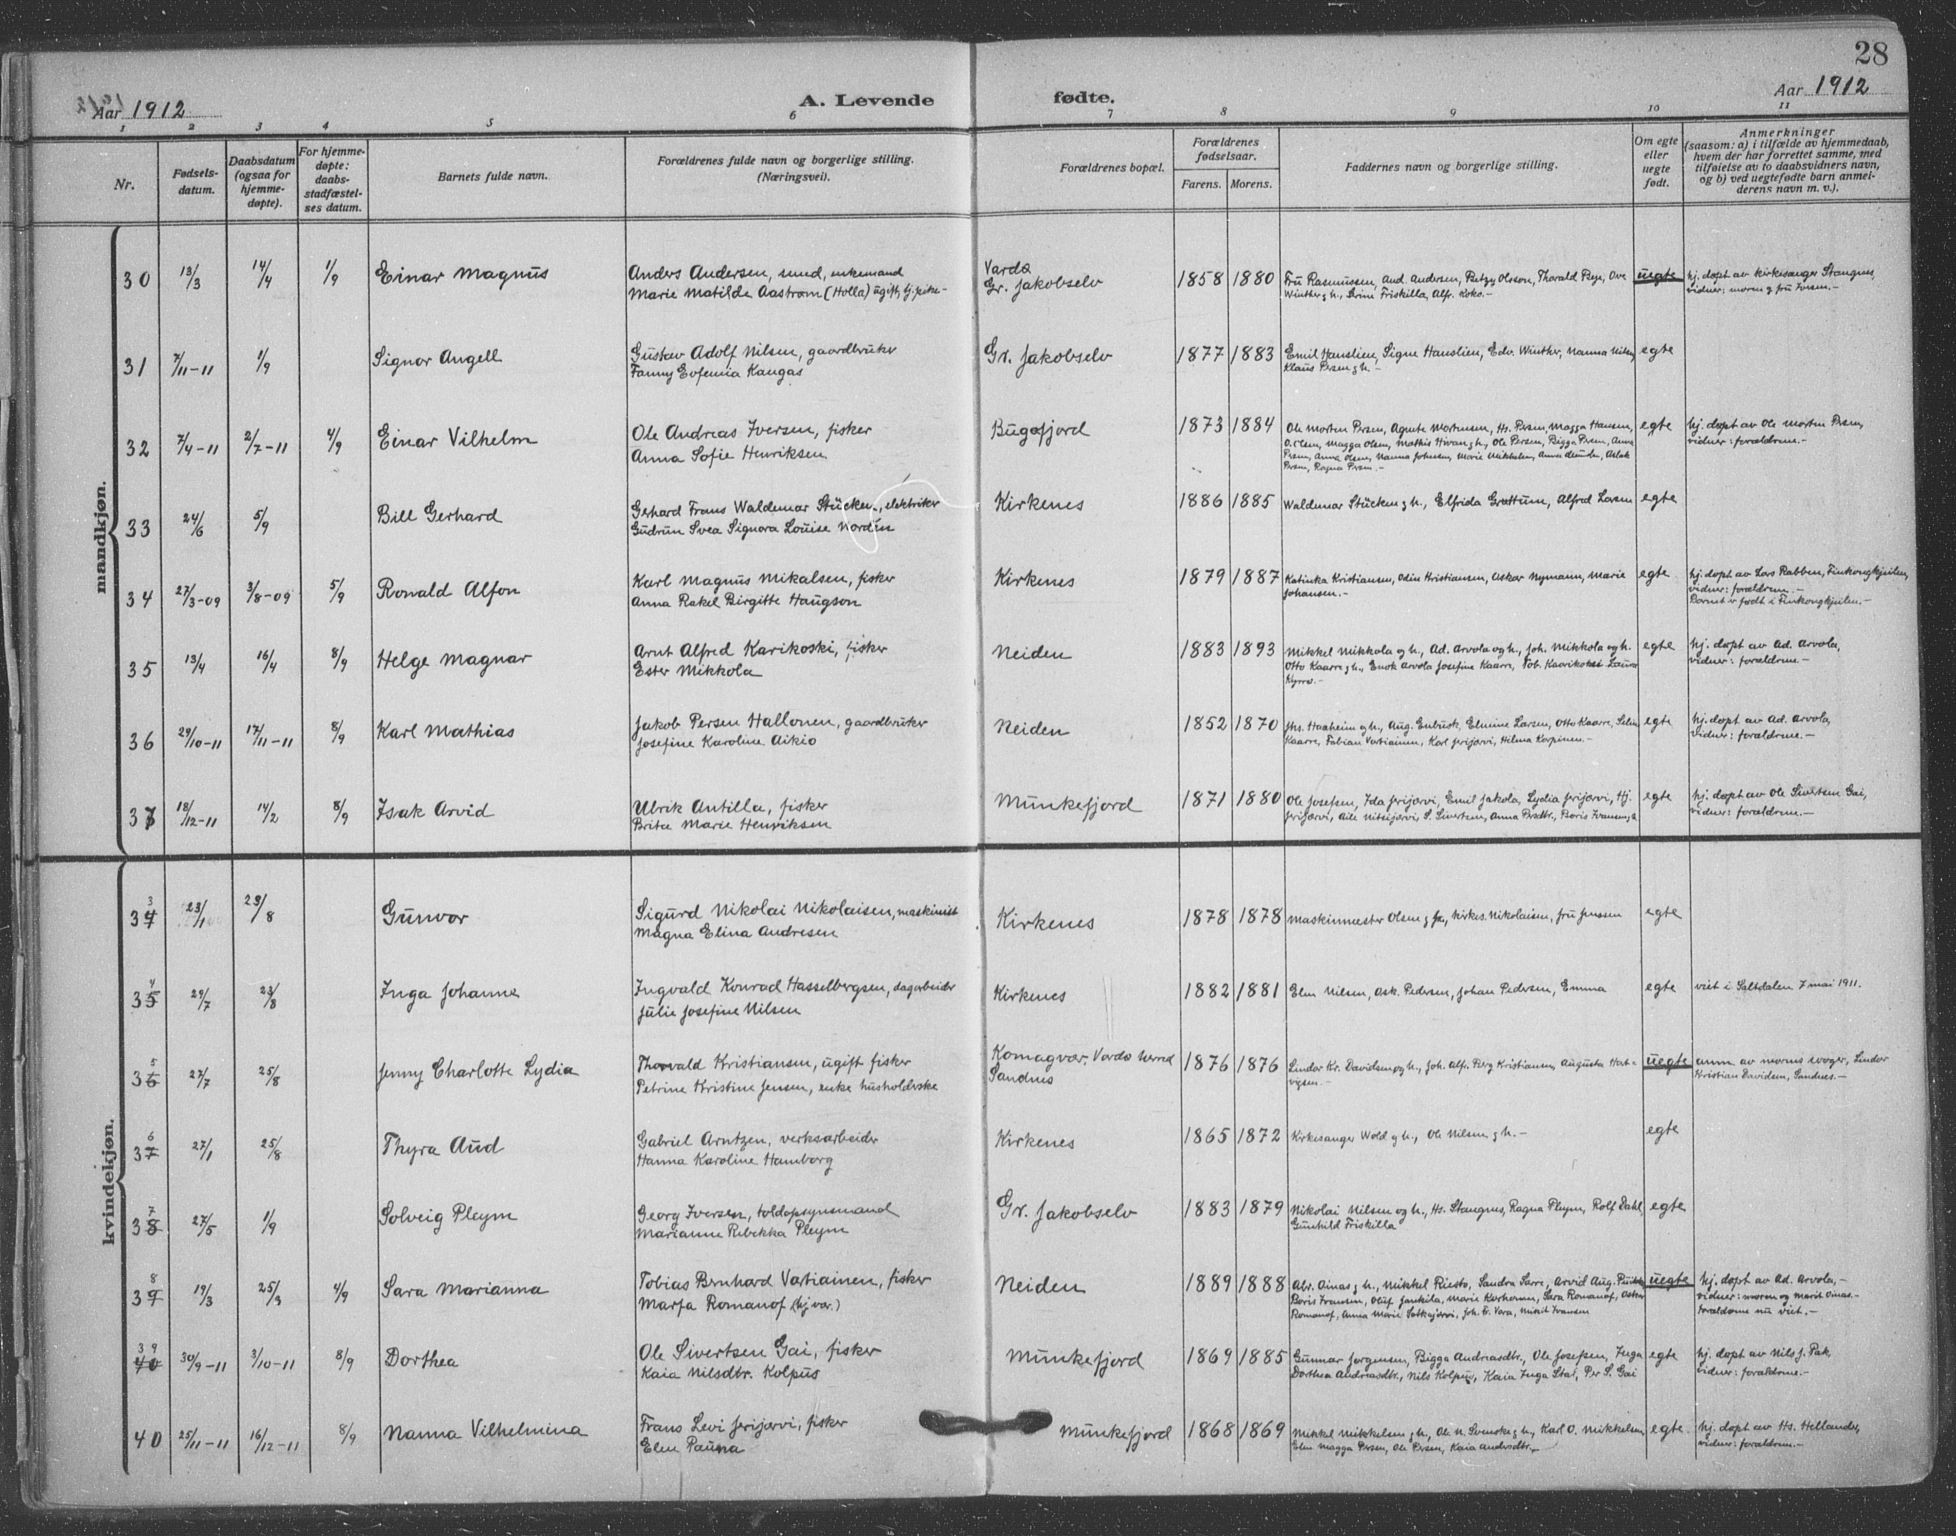 28
Aar 1912
A. Levende fødte.
Aar 1912
1 2 3 4 5 6 7 8 9 10 11
Nr.
Fødsels-
datum.
Daabsdatum
(ogsaa for
hjemme-
døpte).
For hjemme-
døpte:
daabs-
stadfæstel-
ses datum.
Barnets fulde navn.
Forældrenes fulde navn og borgerlige stilling.
(Næringsvei).
Forældrenes bopæl.
Forældrenes
fødselsaar.
Farens. Morens.
Faddernes navn og borgerlige stilling.
Om egte
eller
uegte
født.
Anmerkninger
(saasom: a) i tilfælde av hjemmedaab,
hvem der har forrettet samme, med
tilføielse av to daabsvidners navn,
og b) ved uegtefødte barn anmel-
derens navn m. v.).
mandkjøn.
30 13/3 14/4 1/9 Einar Magnus
Anders Andersen, enkemand
Marie Matilde Aastrøm (Holla) ugift
Vardø
Gr. Jakobselv
1858 1880
Fru Rasmussen, And. Andersen, Betzy Olsson, Thorald
Winther g h., Friskilla, Alfr. Koko.-
uegte
hj. døpt av kirkesanger Stangnes,
vidner: morm g fru Iversen.-
31 7/11-11 1/9 Signor Angell
Gustav Adolf Nilsen, gaardbruker
Fanny Eufemia Kangas
Gr. Jakobselv
1877 1883
Emil Hanslien, Signe Hanslien, Edv. Winther, Nanna Nilsen
Klaus Persen g h.-
egte
32 7/4-11 2/7-11 4/9 Einar Vilhelm
Ole Andreas Iversen, fisker
Anna Sofie Henriksen
Bugøfjord
1873 1884
Ole Morten Persen, Agnete Mortensen, Hs. Persen, Magga Hansen,
O. Olsen, Magga Olsen, Mathis g h., Ole Persen, Bigga Persen, Anne
Persen, Anne Olsen, Nanna Johnsen, Marie Mikkelsen, Aslak
Persen, Ragna Persen.-
egte
hj. døpt av Ole Morten Persen,
vidner: forældrene.-
33 24/6 5/9 Bill Gerhard
Gerhard Frans Waldemar Stücken, elektriker
Gudrun Svea Signora Louise Nordin
Kirkenes
1886 1885
Waldemar Stücken g h., Elfrida Grøttum, Alfred Larsen
egte
34 27/3-09 3/8-09 5/9 Ronald Alfon
Karl Magnus Mikalsen, fisker
Anna Rakel Birgitte Haugson
Kirkenes
1879 1887
Katinka Kristiansen, Odin Kristiansen, Oskar Nymann, Marie
Johansen.-
egte
hj. døpt av Lars Rabben, Finkongkjeilen,
vidner: forældrene.-
Barnet er født i Finkongkjeilen.-
35 13/4 16/4 8/9 Helge Magnar
Arnt Alfred Karikoski, fisker
Ester Mikkola
Neiden
1883 1893
Mikkel Mikkola og h., Ad. Arvola og h., Joh. Mikkola og h.
Otto Kaarre g h., Enok Arvola Josefine Kaarre, Tob. Kaarikoski Laura
Kyrrø.-
egte
hj. døpt av Ad. Arvola,
vidner: forældrene.-
36 29/10-11 17/11-11 8/9 Karl Mathias
Jakob Persen Hallonen, gaardbruker
Josefine Karoline Aikio
Neiden
1852 1870
Jhs. Haaheim og h., Aug. Enbusk, Elmine Larsen, Otto Kaarre, Selma
Kaarre, Fabian Vartiainen, Karl Jerijærvi, Hilma Korpinen.-
egte
hj. døpt av Ad. Arvola,
vidner: forældrene.-
37 18/12-11 14/2 8/9 Isak Arvid
Ulrik Antilla, fisker
Britee Marie Henriksen
Munkefjord
1871 1880
Ole Josefsen, Ida Jerijærvi, Emil Jakola, Lydia Jerijærvi, Hj.
Jerijærvi, Aile Nitsijærvi, S. Sivertsen, Anna Persdtr., Boris Ivansen
egte
hj. døpt av Ole Sivertsen Gai,
vidner: forældrene.-
kvindekjøn.
33 23/1 23/8 Gunvor
Sigurd Nikolai Nikolaisen, maskinist
Magna Elina Andresen
Kirkenes
1878 1878
Maskinmester Olsen g fru, Nikolaisen, fru Jenssen
egte
34 29/7 23/8 Inga Johanne
Ingvald Konrad Hasselbergsen, dagarbeider
Julie Josefine Nilsen
Kirkenes
1882 1881
Elen Nilsen, Osk. Pedersen, Johan Pedersen, Emma
egte
viet i Saltdalen 7 mai 1911.
35 27/7 25/8 Jenny Charlotte Lydia
Thorvald Kristiansen, ugift fisker
Petrine Kristine Jensen, enke husholderske
Komagvær, Vardø herred
Sandnes
1876 1876
Lindor Kr. Davidsen og h., Joh. Alfr. Berg Kristiansen, Augusta Hart-
vigsen.-
uegte
anm. av morens svoger, Lindor
Kristian Davidsen, Sandnes.-
36 27/1 25/8 Thyra Aud
Gabriel Arntzen, verksarbeider
Hanna Karoline Hamborg
Kirkenes
1865 1872
Kirkesanger Wold g h., Ole Nilsen g h.-
egte
37 27/5 1/9 Solveig Pleym
Georg Iversen, toldopsynsmand
Marianne Rebekka Pleym
Gr. Jakobselv
1883 1879
Nikolai Nilsen og h., Hs. Stangnes, Ragna Pleym, Rolf Dahl,
Gunhild Friskilla
egte
38 19/3 25/3 4/9 Sara Marianna
Tobias Bernhard Vartiainen, fisker
Marfa Romanof (hj. var.)
Neiden
1889 1888
Abr. Ainas g h., Mikkel Riesto, Sandra Sarre, Arvid Aug.
Boris Ivansen, Oluf Jankila, Marie Korhonen, Sara Romanof, Oskar
Romanof, Anna Marie Satkajærvi, Joh. E. Vara, Marit Ivansen
uegte
hj. døpt av Ad. Arvola,-
vidner: morm og Marit Ainas.-
Forældrene nu viet.-
39 30/9-11 3/10-11 8/9 Dorthea
Ole Sivertsen Gai, fisker
Kaia Nilsdtr. Kolpus
Munkefjord
1869 1885
Gunnar Jørgensen, Bigga Andreasdtr., Ole Josefsen, Inga
Dorthea Andreasdtr., Nils Kolpus, Kaia Inga Stai, Per S. Gai
egte
hj. døpt av Nils J. Pak,
vidner: forældrene.-
40 25/11-11 16/12-11 8/9 Nanna Vilhelmina
Frans Levi Jerijærvi, fisker
Elen Pauna
Munkefjord
1868 1869
Mikkel Mikkelsen g h., Ole N. Svenske g h., Karl O. Mikkelsen,
Elen Magga Persen, Ole Persen, Kaia Andersdtr.-
egte
hj. døpt av Hs. Hellander,
vidner: forældrene.-